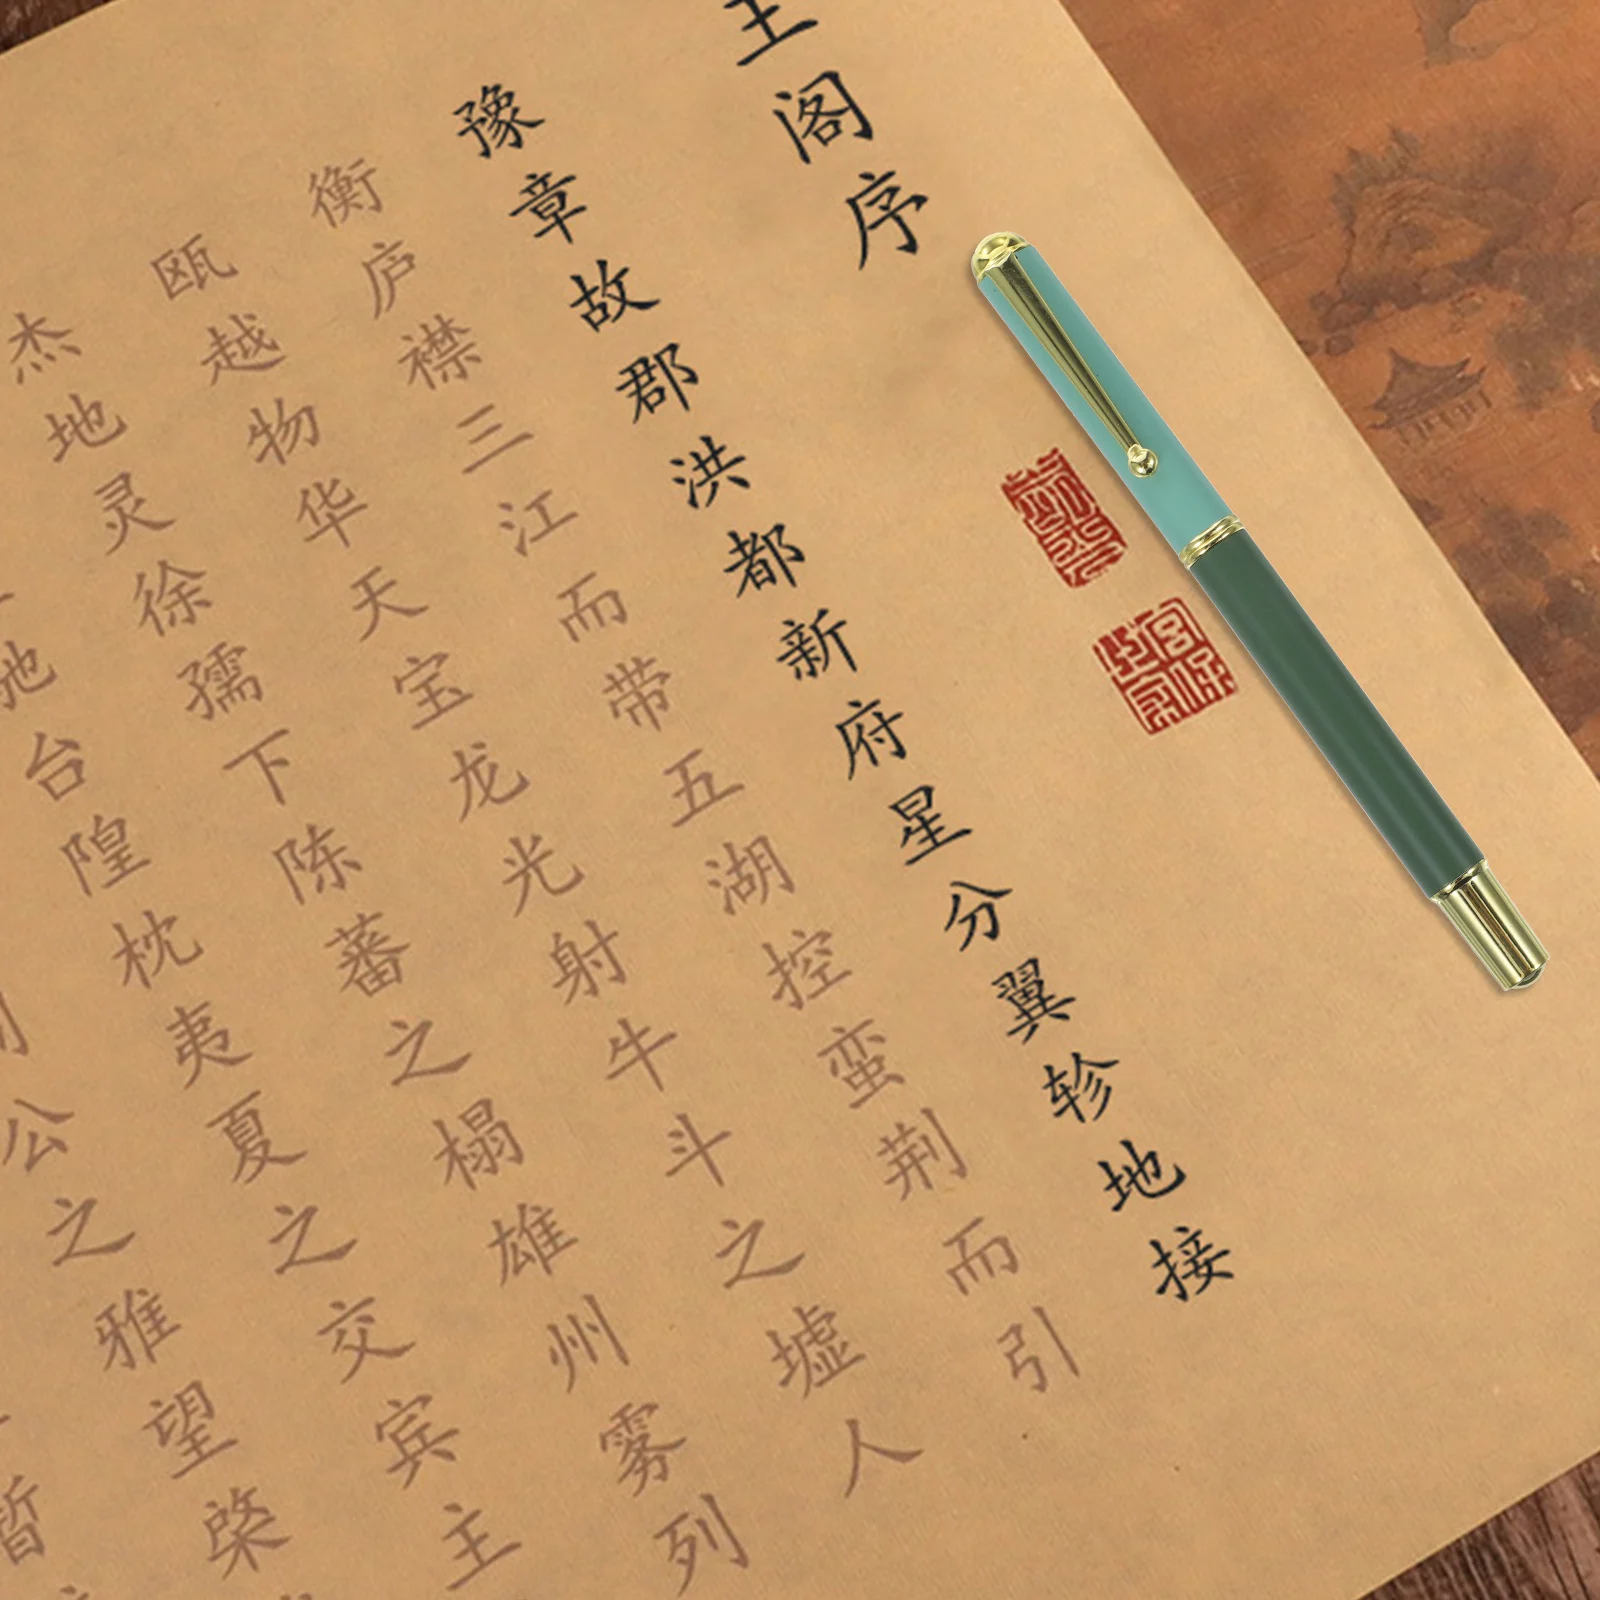 王阁序
豫章故郡洪都新府星分翼轸地接
衡庐襟三江而带五湖控蛮荆而引
瓯越物华天宝龙光射牛斗之墟人
杰地灵徐孺下陈蕃之榻雄州雾列
驰台隍枕夷夏之交宾主
公之雅望棨
暂